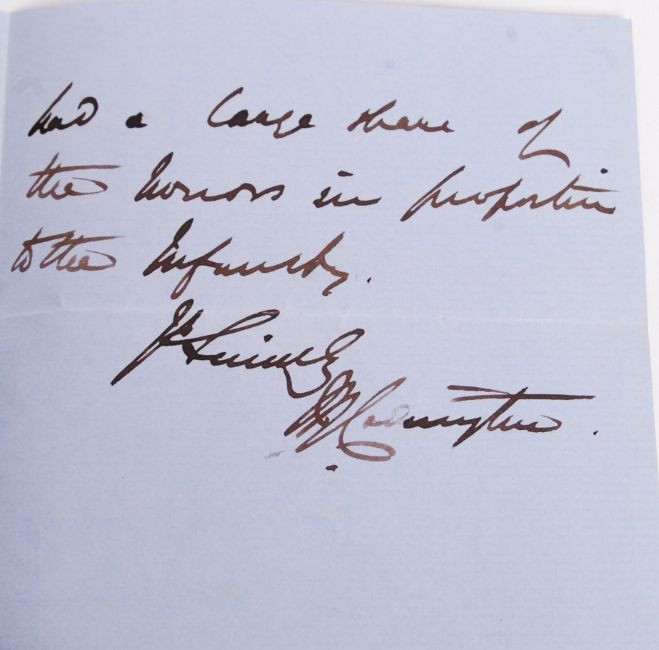 had a large share of
the honors in proportion
to the Infantry.
Yrs Sincerely
Codrington.